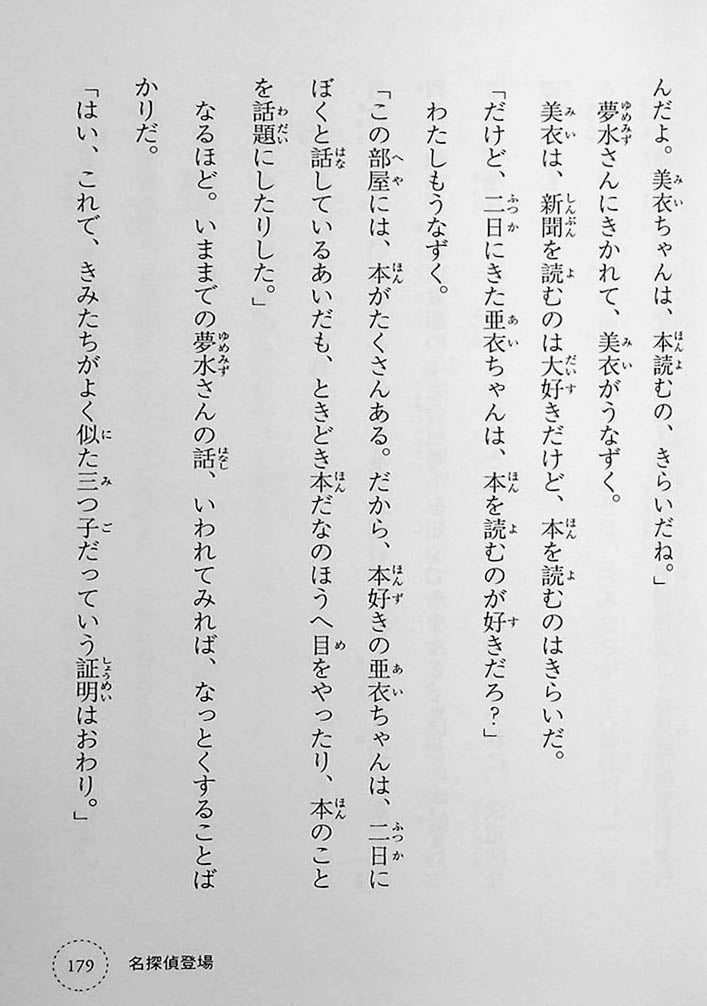 んだよ。美衣ちゃんは、本読むの、きらいだね。」
夢水さんにきかれて、美衣がうなずく。
美衣は、新聞を読むのは大好きだけど、本を読むのはきらいだ。
「だけど、二日にきた亜衣ちゃんは、本を読むのが好きだろ？」
わたしもうなずく。
「この部屋には、本がたくさんある。だから、本好きの亜衣ちゃんは、二日に
ぼくと話しているあいだも、ときどき本だなのほうへ目をやったり、本のこと
を話題にしたりした。」
なるほど。いままでの夢水さんの話、いわれてみれば、なっとくすることば
かりだ。
「はい、これで、きみたちがよく似た三つ子だっていう証明はおわり。」
179 名探偵登場